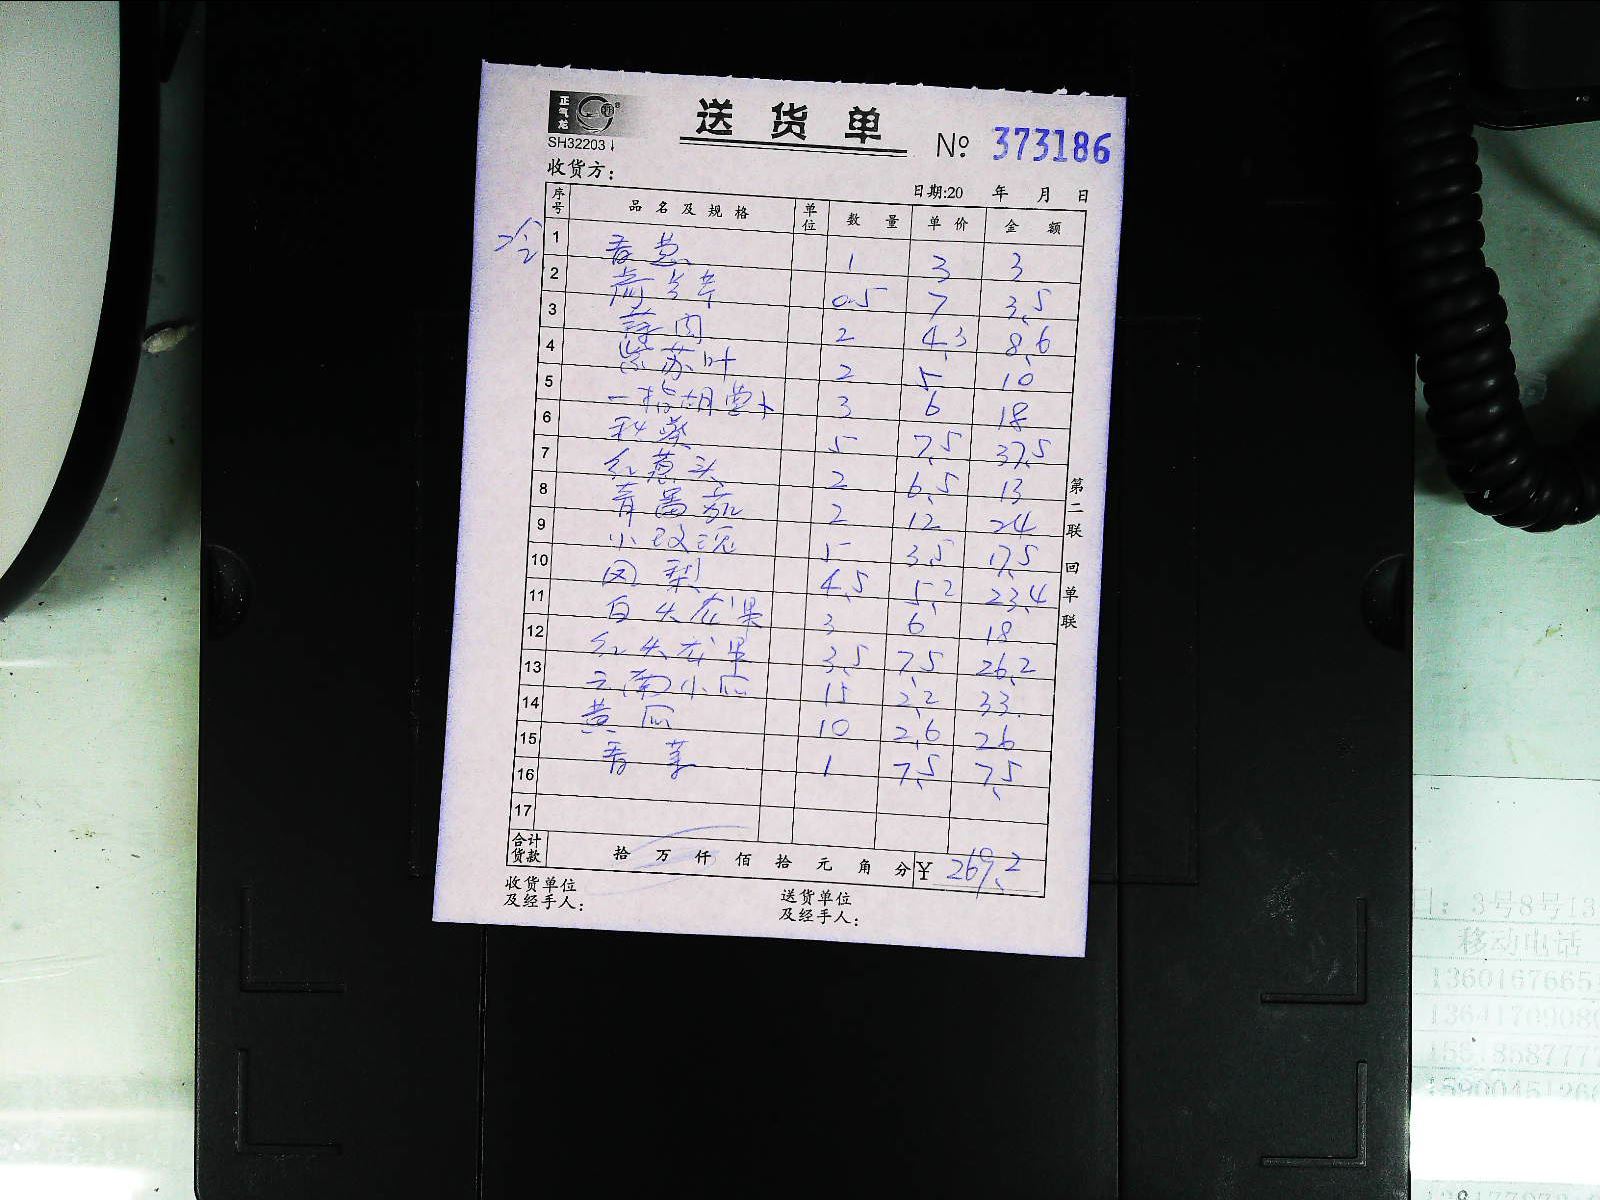 正气龙
送货单
№ 373186
SH32203↓
收货方：
日期:20 年 月 日
序号 品名及规格 单位 数量 单价 金额
冷
1 香葱 1 3 3
2 荷兰芹 0.5 7 3.5
3 蒜肉 2 4.3 8.6
4 紫苏叶 2 5 10
5 一指胡萝卜 3 6 18
6 秋葵 5 7.5 37.5
7 红葱头 2 6.5 13
8 青番茄 2 12 24
9 小玫瑰 5 3.5 17.5
10 凤梨 4.5 5.2 23.4
11 白火龙果 3 6 18
12 红火龙果 3.5 7.5 26.2
13 云南小瓜 15 2.2 33
14 黄瓜 10 2.6 26
15 香菜 1 7.5 7.5
16
17
合计货款 拾 万 仟 佰 拾 元 角 分 ¥ 269.2
收货单位及经手人：
送货单位及经手人：
第二联 回单联
日: 3号8号13
移动电话
1360167665
1364170908